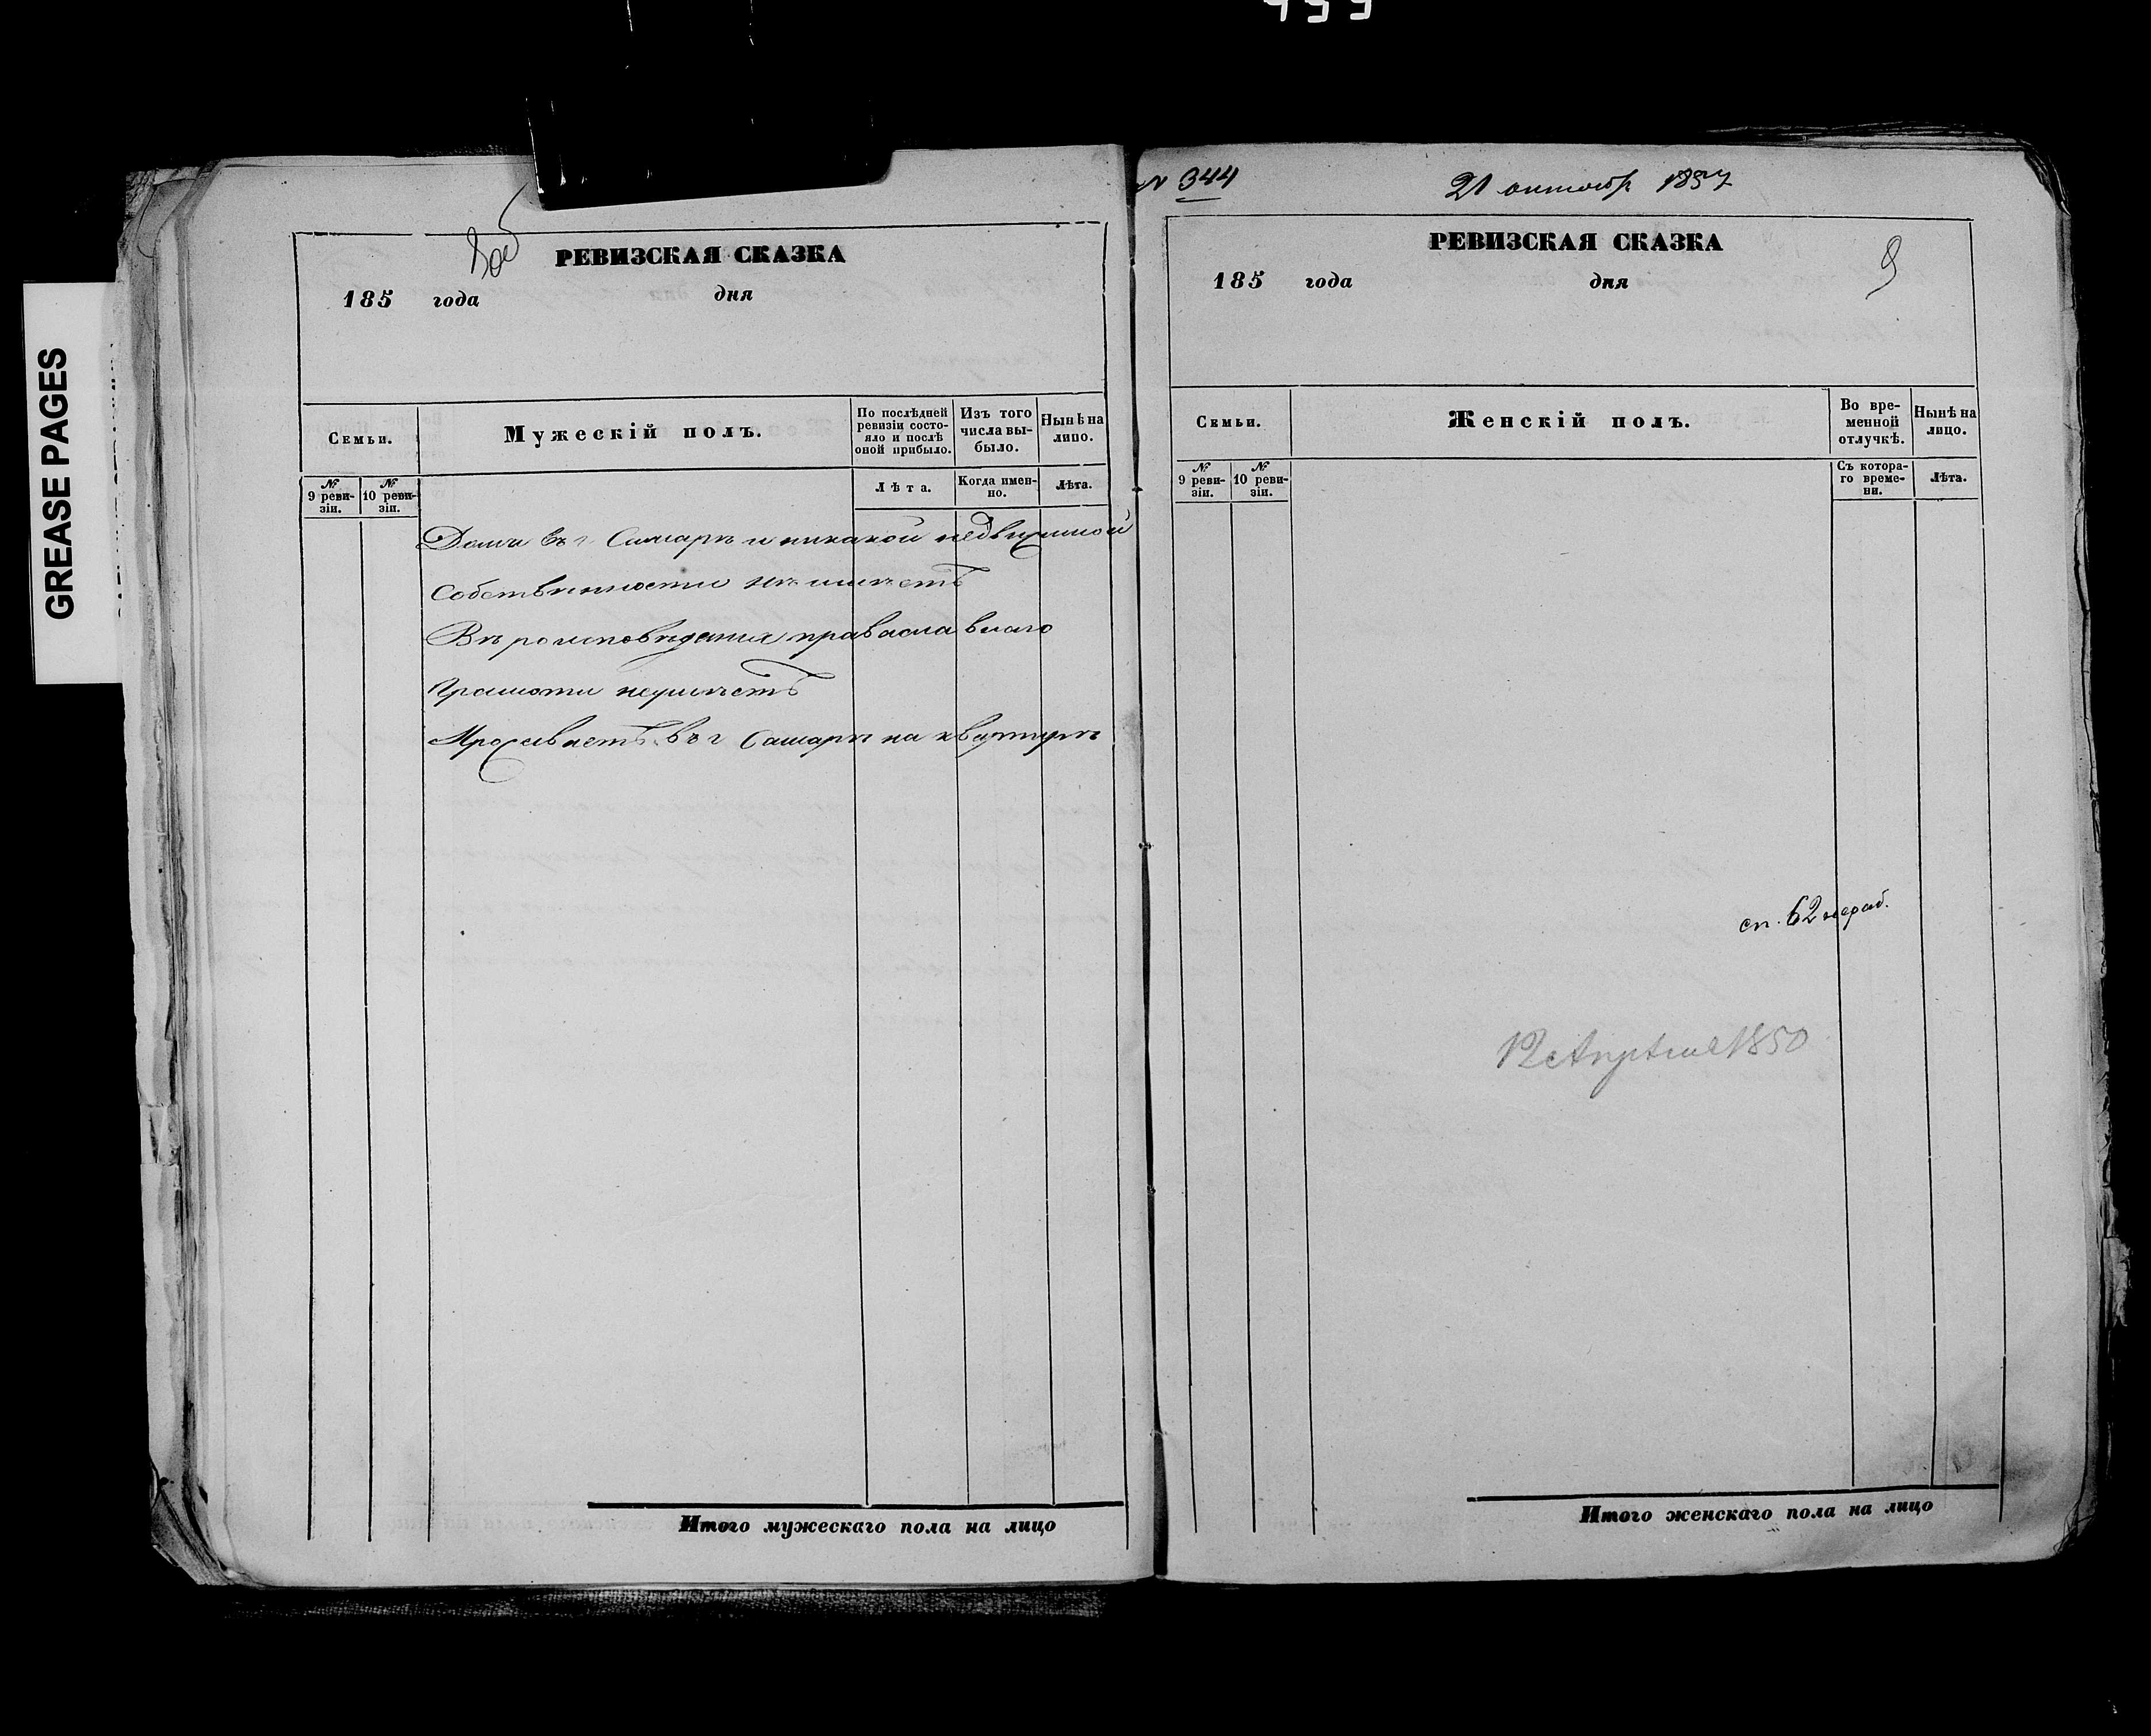 GREASE PAGES
РЕВИЗСКАЯ СКАЗКА
185 года дня
Семьи.
Мужескій полъ.
По послѣдней ревизіи состо-
яло и послѣ
оной прибыло.
Изъ того
числа вы-
было.
Нынѣ на
лицо.
№ 9 реви-
зіи.
№ 10 реви-
зіи.
Лѣта.
Когда имен-
но.
Лѣта.
Дома въ г Самарѣ и никакой недвижимой
собственности не имѣетъ
Вѣроисповѣданія православнаго
Грамоти неумѣетъ
Проживаетъ въ г Самарѣ на квартирѣ
Итого мужескаго пола на лицо
N 344
21 октябр 1857
РЕВИЗСКАЯ СКАЗКА
9
185 года дня
Семьи.
Женскій полъ.
Во вре-
менной
отлучкѣ.
Нынѣ на
лицо.
№ 9 реви-
зіи.
№ 10 реви-
зіи.
Съ котора-
го време-
ни.
Лѣта.
сп. 62 нераб.
12 Апрѣля 1850
Итого женскаго пола на лицо